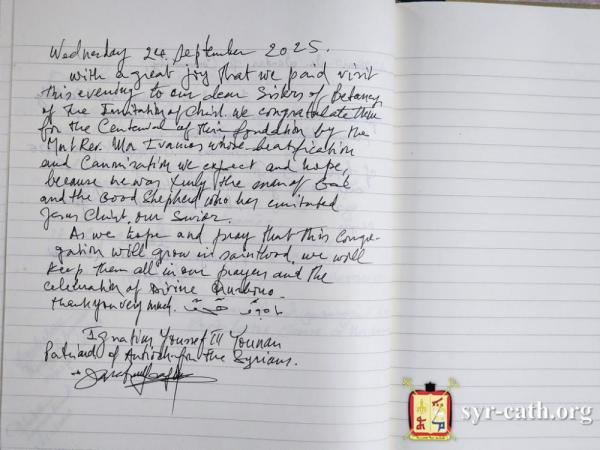 Wednesday 24 September 2025.
with a great joy that we paid visit
this evening to our dear Sisters of Betany
of the Imitation of Christ. we congratulate them
for the Centenial of their fondation by the
Most Rev. Mr. Ivanios whose beatification
and Canonisation we expect and hope,
because he was truly the man of God
and the Good Shepherd who has imitated
Jesus Christ, our Savior.
As we hope and pray that this Congre-
gation will grow in sainthood, we will
keep them all in our prayers and the
celebration of Divine
thank you very much.
Ignatius Youssef III Younan
Patriarch of Antioch for the Syrians.
syr-cath.org